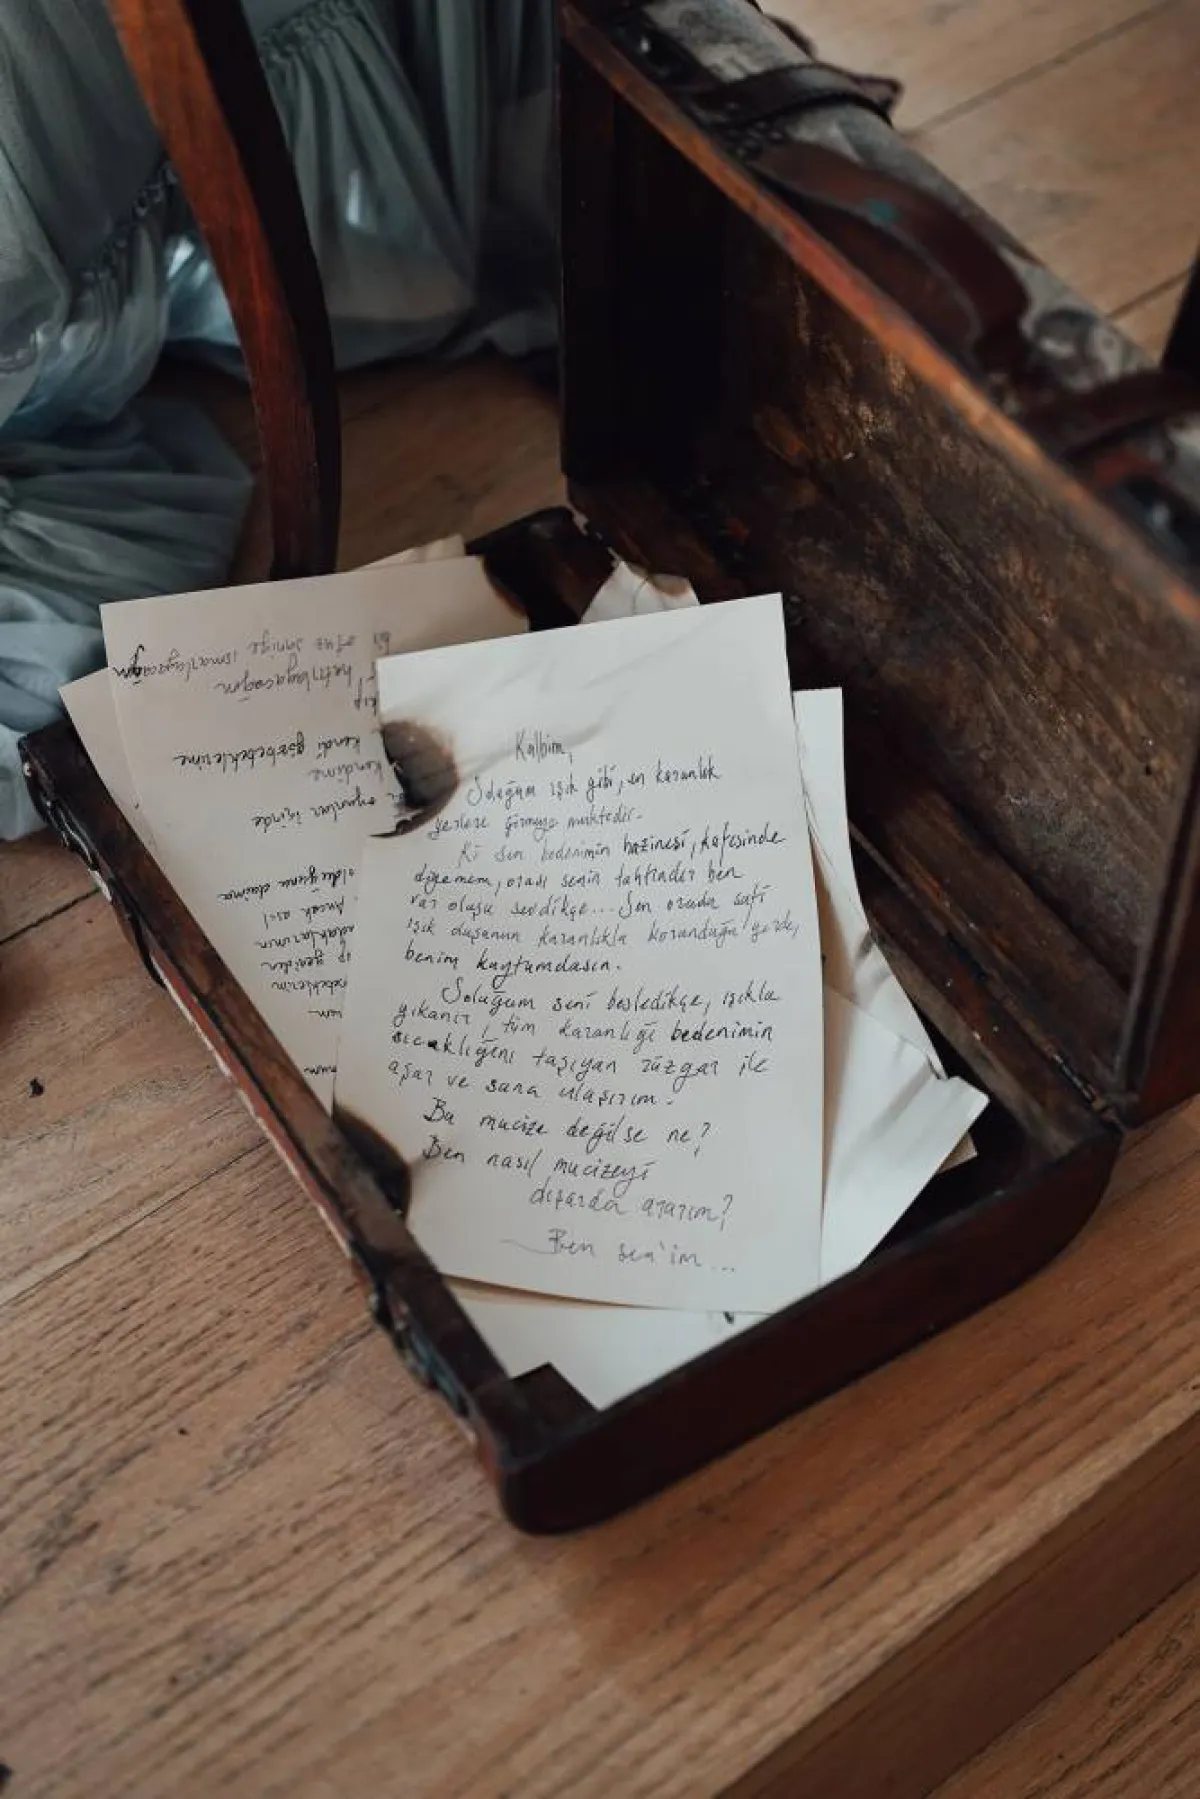 Kalbim,
Soluğum ışık gibi, en karanlık
yerlere girmeye muktedir.
Ki sen bedenimin hazinesi, kafesinde
diyemem, orası senin tahtındır ben
var oluşu sevdikçe... Sen orada safi
ışık duşunun karanlıkla korunduğu yerde,
benim kaytumdasın.
Soluğum seni besledikçe, ışıkla
yıkanır, tüm karanlığı bedenimin
sıcaklığını taşıyan rüzgar ile
aşar ve sana ulaşırım.
Bu mucize değilse ne?
Ben nasıl mucizeyi
dışarda ararım?
Ben sen'im...
bir oyuz saniye ismarlayacağım
hatırlayacağım
kendi gözbebeklerime
kendime
oyunlar içinde
olduğunu daima
Ancak asıl
yeniden